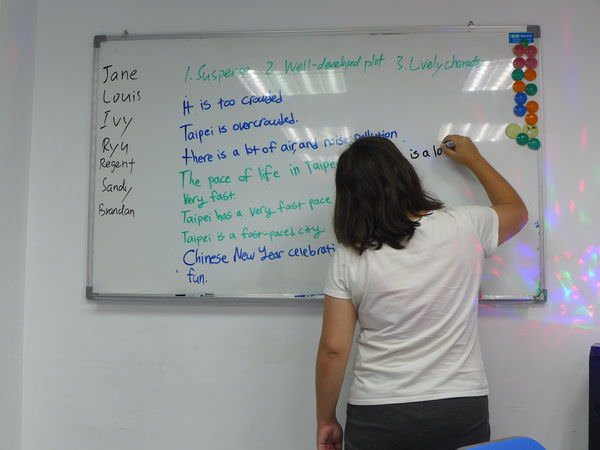 Jane
Louis
Ivy
Ryu
Regent
Sandy
Brandan
1. Suspense 2. Well-developed plot 3. Lively characte
It is too crowded
Taipei is overcrowded.
there is a lot of air and noise pollution
is a lo
The pace of life in Taipei
very fast.
Taipei has a very fast pace
Taipei is a fast-paced city
Chinese New Year celebrati
fun.